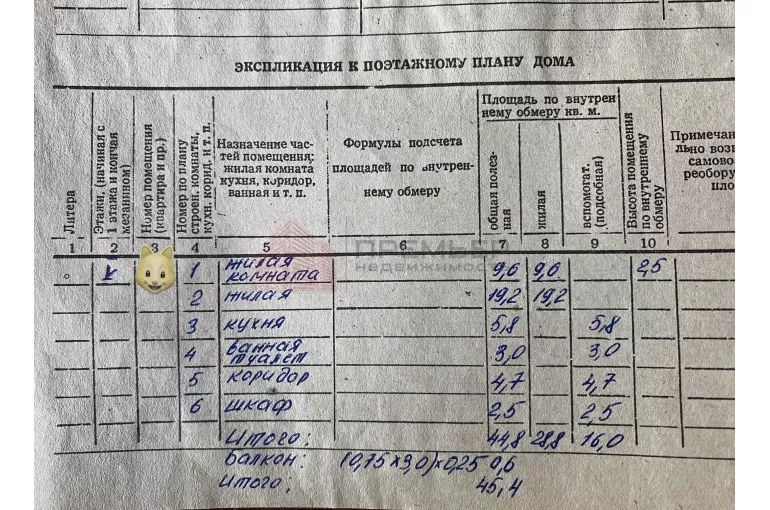 ЭКСПЛИКАЦИЯ К ПОЭТАЖНОМУ ПЛАНУ ДОМА
Литера
Этажи, (начиная с
1 этажа и кончая
мезанином)
Номер помещения
(квартира и пр.)
Номер по плану
строен. комнаты,
кухн. корид. и т. п.
Назначение час-
тей помещения:
жилая комната
кухня, коридор,
ванная и т. п.
Формулы подсчета
площадей по внутрен-
нему обмеру
Площадь по внутрен
нему обмеру кв. м.
общая полез-
ная
жилая
вспомогат.
(подсобная)
Высота помещения
по внутреннему
обмеру
Примечан
льно воз
самово
реобору
пло
1 2 3 4 5 6 7 8 9 10
1 жилая комната 9,6 9,6 2,5
2 жилая 19,2 19,2
3 кухня 5,8 5,8
4 ванная туалет 3,0 3,0
5 коридор 4,7 4,7
6 шкаф 2,5 2,5
Итого: 44,8 28,8 16,0
балкон: (0,75×3,0)×0,25 0,6
итого: 45,4
ПРЕМЬЕР
недвижимос